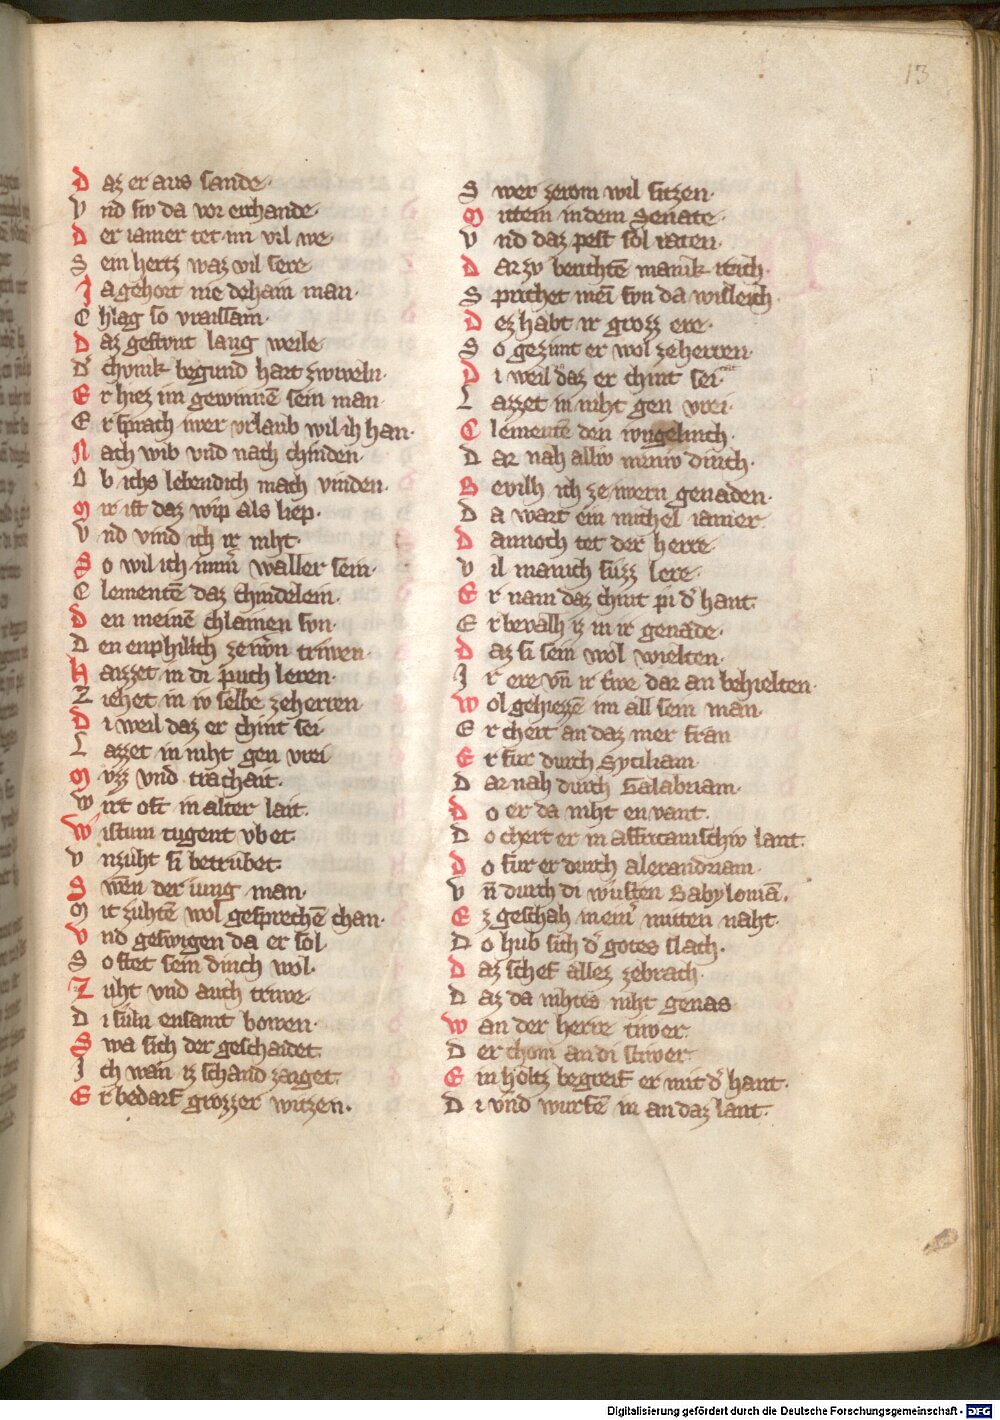 13
D az er aus sande·
V nd siv da vor erchande·
D er iamer tet im vil we
S ein hertz waz vil sere
J a gehort nie dehain man·
C hlag so vraissam·
D az gestvnt lang weile
D͛ chvnik begund hart zwiveln·
E r hiez im gewinnē sein man
E r sprach iwer vrlaub wil ih han·
N ach wib vnd nach chinden·
O b ichs lebendich mach vinden·
M ir ist daz wip als liep·
V nd vind ich ir niht·
S o wil ich im̄ waller sein·
C lementē daz chindelein·
D en meinē chlainen svn·
D en enphilich ze iwͤn triwen
H aizzet in di puch leren·
Z iehet in iv selbe ze herren
D i weil daz er chint sei
L azzet in niht gen vrei
M vzz vnd trachait·
W irt oft in alter lait·
W istum tugent vbet·
V nzuht si betrubet·
S wen der iung man·
M it zuhtē wol gesprechē chan·
V nd geswigen da er sol
S o stet sein dinch wol·
Z uht vnd auch triwe·
D i suln ensamt bowen·
S wa sich der geschaidet·
I ch wan iz schand zaiget·
E r bedarf grozzer witzen·
S wer ze rom wil sitzen·
M itten in dem Senate·
V nd daz pest sol raten·
D ar zv berichtē manik itrich·
S prichet mei svn da wisleich
D ez habt ir grozz ere·
S o gezimt er wol ze herren·
D i weil daz er chint sei
L azzet in niht gen vrei·
C lementē den ivngelinch·
D ar nah alliv meiniv dinch·
B evilh ich ze iwern genaden·
D a wart ein michel iamer
D annoch tet der herre·
V il manich suzz lere·
E r nam daz chint pi d͛ hant·
E r bevalh iz in ir genade·
D az si sein wol wielten·
J r ere vn̄ ir triwe dar an behielten·
W ol gehiezzē im all sein man·
E r chert an daz mer fran
E r fur durch Syciliam
D ar nah durch Galabriam·
D o er da niht en vant·
D o chert er in affricanischiv lant·
D o fur er durch alexandriam·
V n̄ durch di wusten Babyloniā.
E z geschah in ein͛ mitten naht·
D o hub sich d͛ gotes slach·
D az schef allez zebrach·
D az da nihtes niht genas
W an der herre tiwer
D er chom an di stiwer
E in holtz begreif er mit d͛ hant·
D i vnd wurfē in an daz lant·
Digitalisierung gefördert durch die Deutsche Forschungsgemeinschaft - DFG